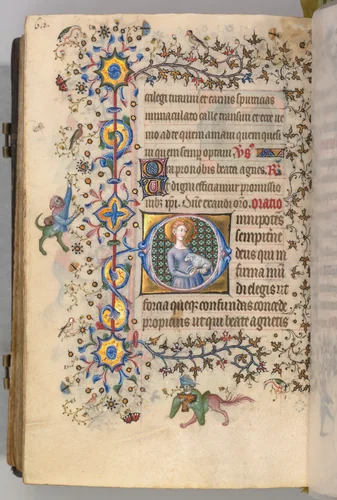 cilegi tiranni et carnis spurcicias
immaculato calle transivi et ecce ve
nio ad te quem amavi quem quesi
vi quem semp optavi. Vs
Ora pro nobis beata agnes. R
Ut digni efficiamur promissio
nibz xpi. Dne exaudi oro. oratio
Omnipotens
sempitne
deus qui in
firma mu
di elegis ut
forcia queqz confundas concede
propicius ut qui beate agnetis